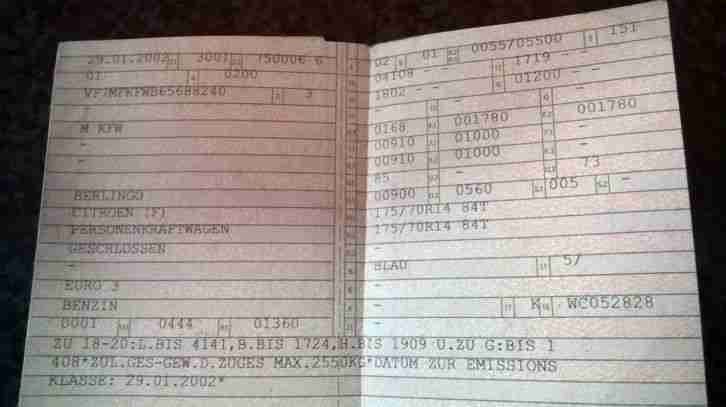 29.01.2002 3001 750006 6
01 0200
VF7MFKFWB65688240 3
-
M KFW
-
-
BERLINGO
CITROEN (F)
PERSONENKRAFTWAGEN
GESCHLOSSEN
-
EURO 3
BENZIN
0001 0444 01360
02 01 0055/05500 151
04108 - - 1719 - -
1802 - - 01200 - -
- - -
0168 001780 001780
00910 01000 -
00910 01000 -
85 - 73
00900 0560 005 -
175/70R14 84T
175/70R14 84T
-
BLAU 57
-
- K WC052828
-
ZU 18-20:L.BIS 4141,B.BIS 1724,H.BIS 1909 U.ZU G:BIS 1
408*ZUL.GES-GEW.D.ZUGES MAX.2550KG*DATUM ZUR EMISSIONS
KLASSE: 29.01.2002*